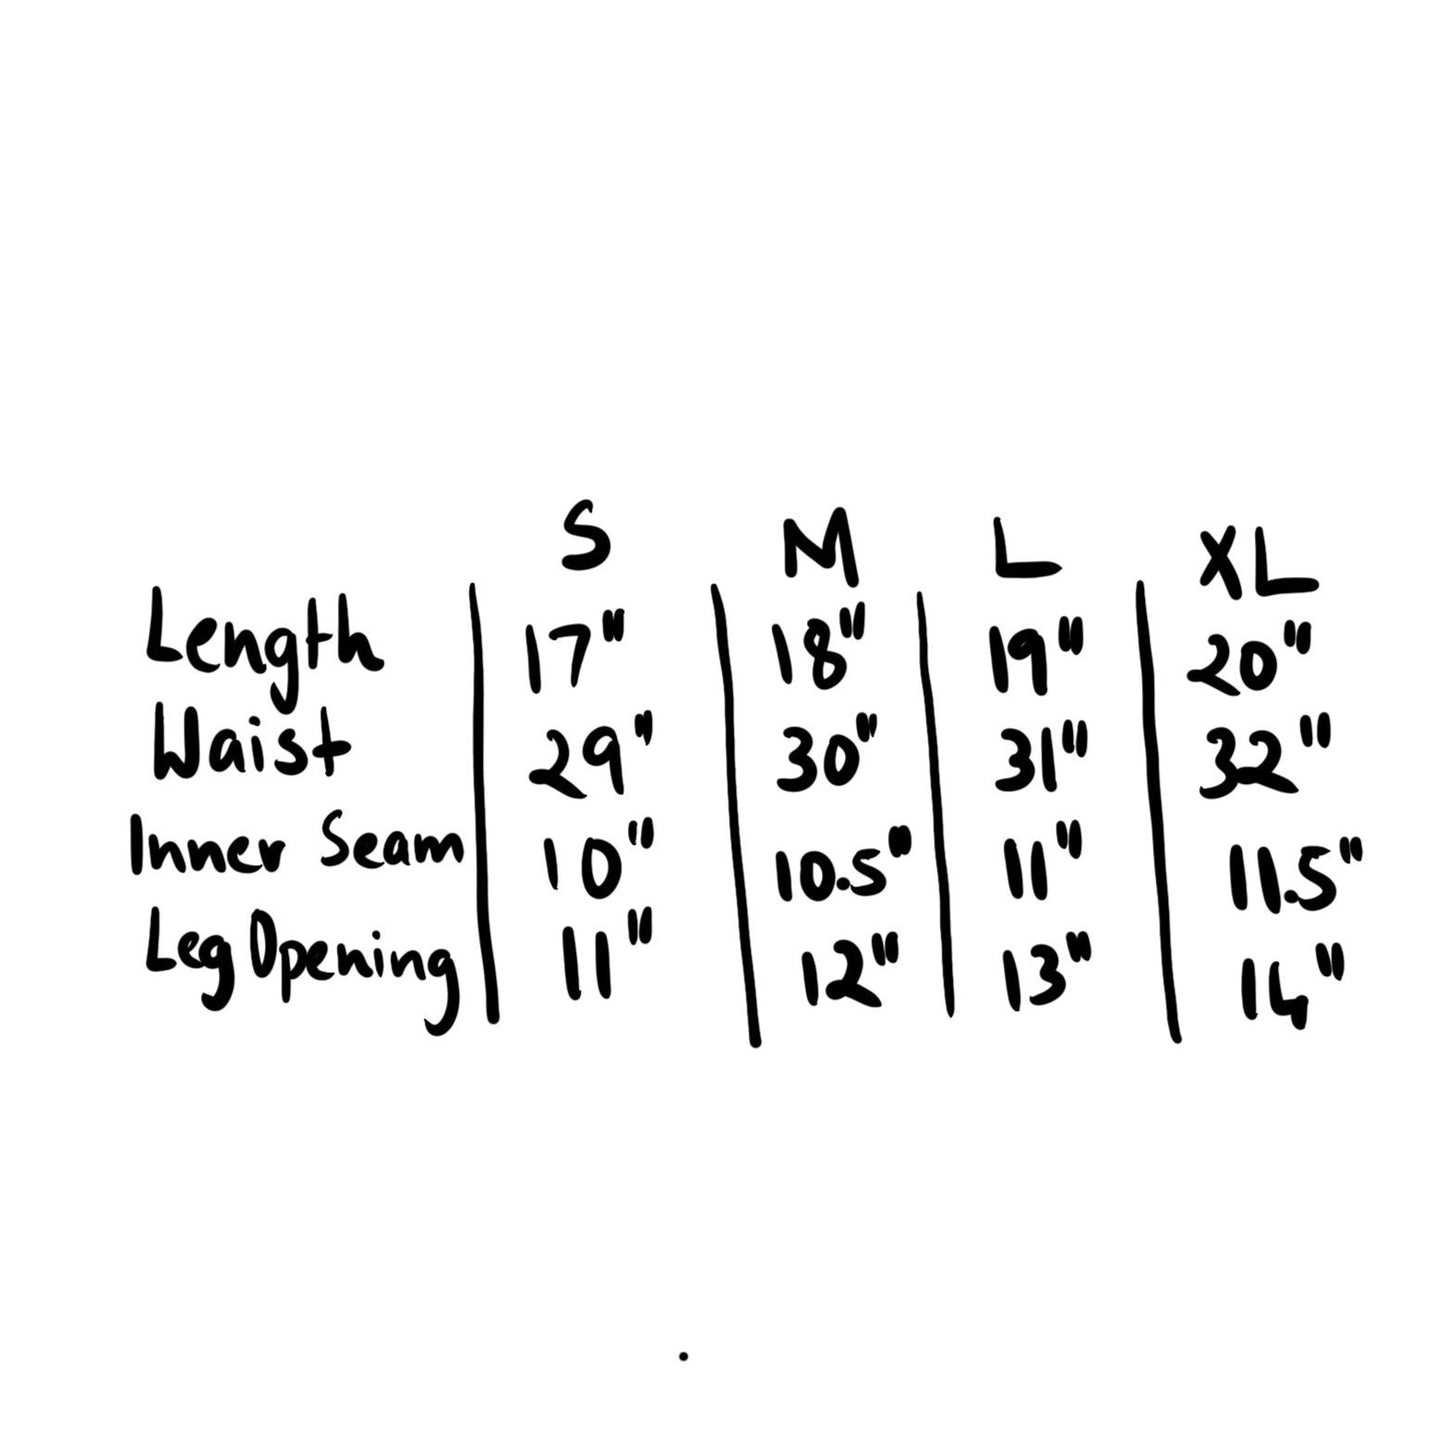 S M L XL
Length 17" 18" 19" 20"
Waist 29" 30" 31" 32"
Inner Seam 10" 10.5" 11" 11.5"
Leg Opening 11" 12" 13" 14"